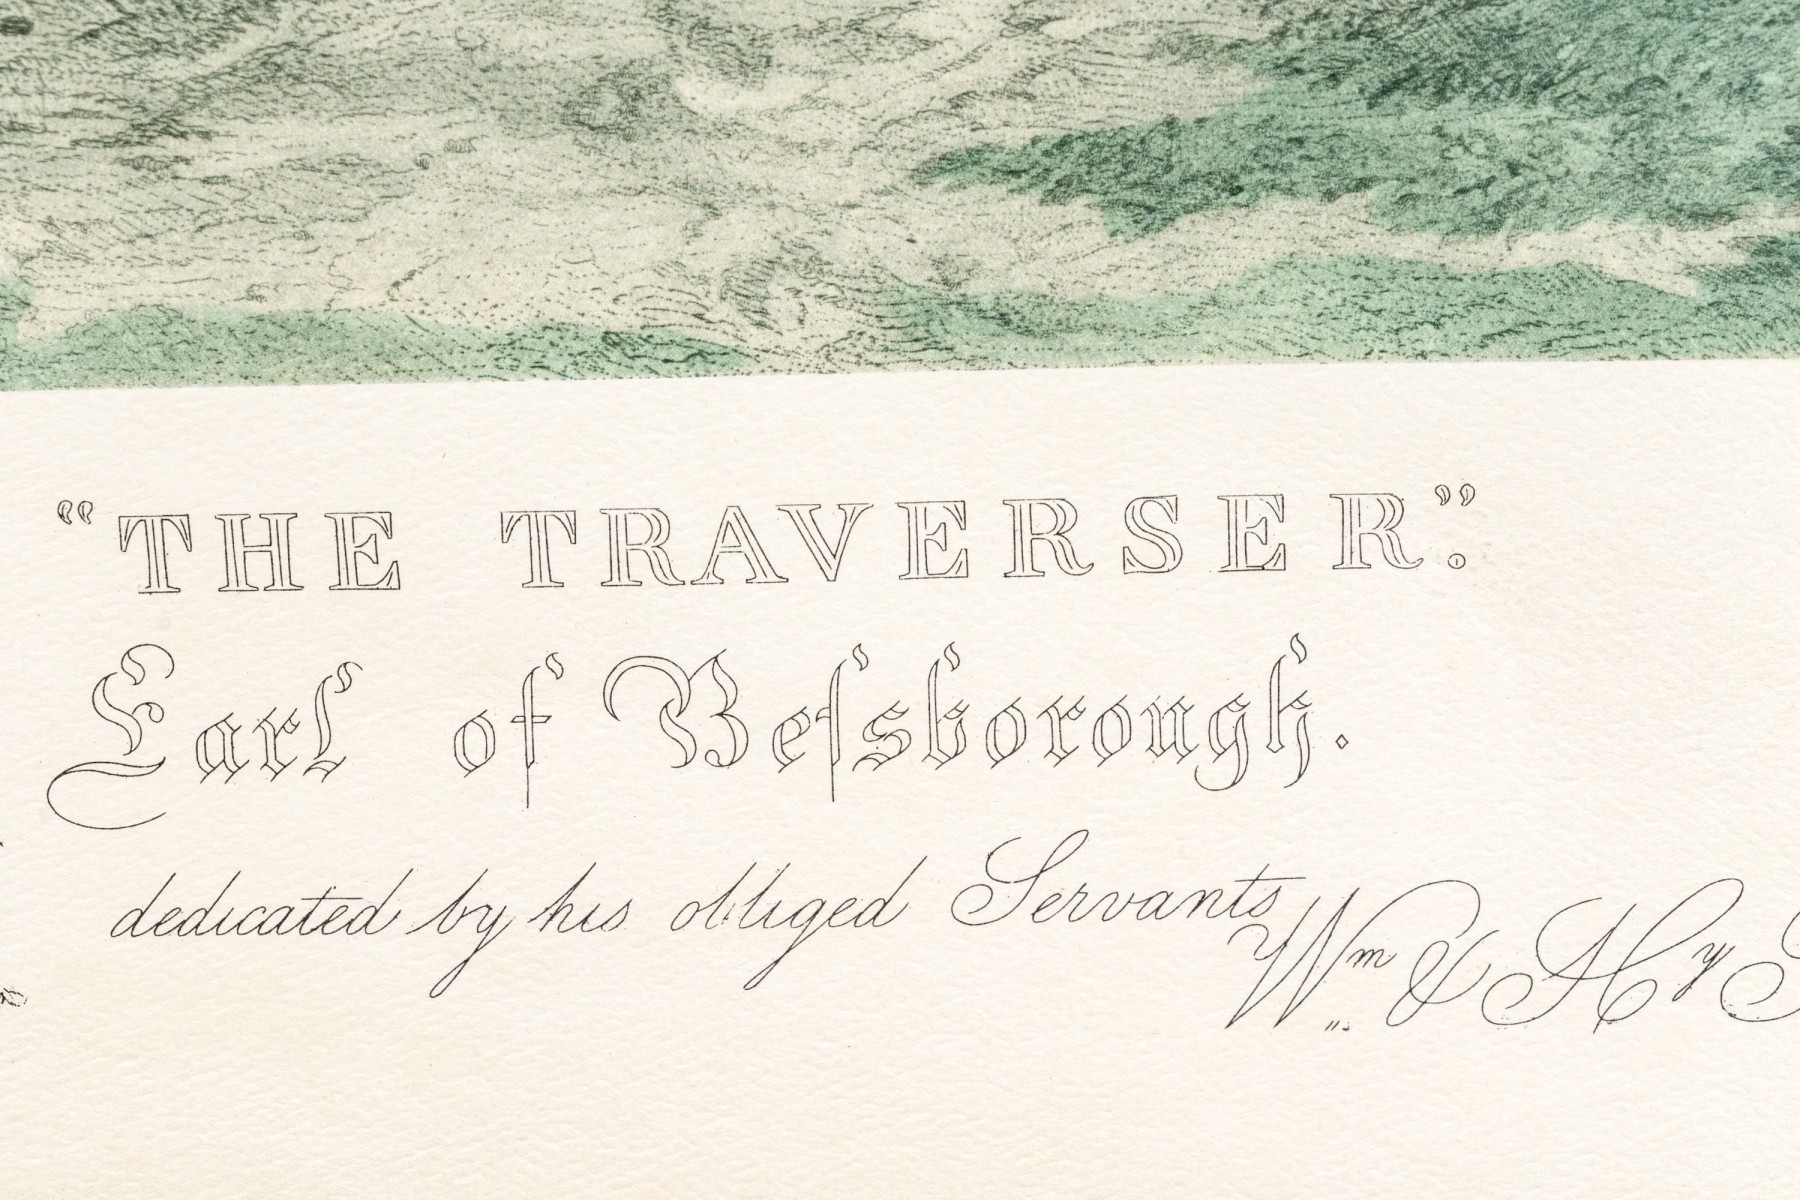 “THE TRAVERSER.”
Earl of Beſsborough.
dedicated by his obliged Servants
Wm & Hy